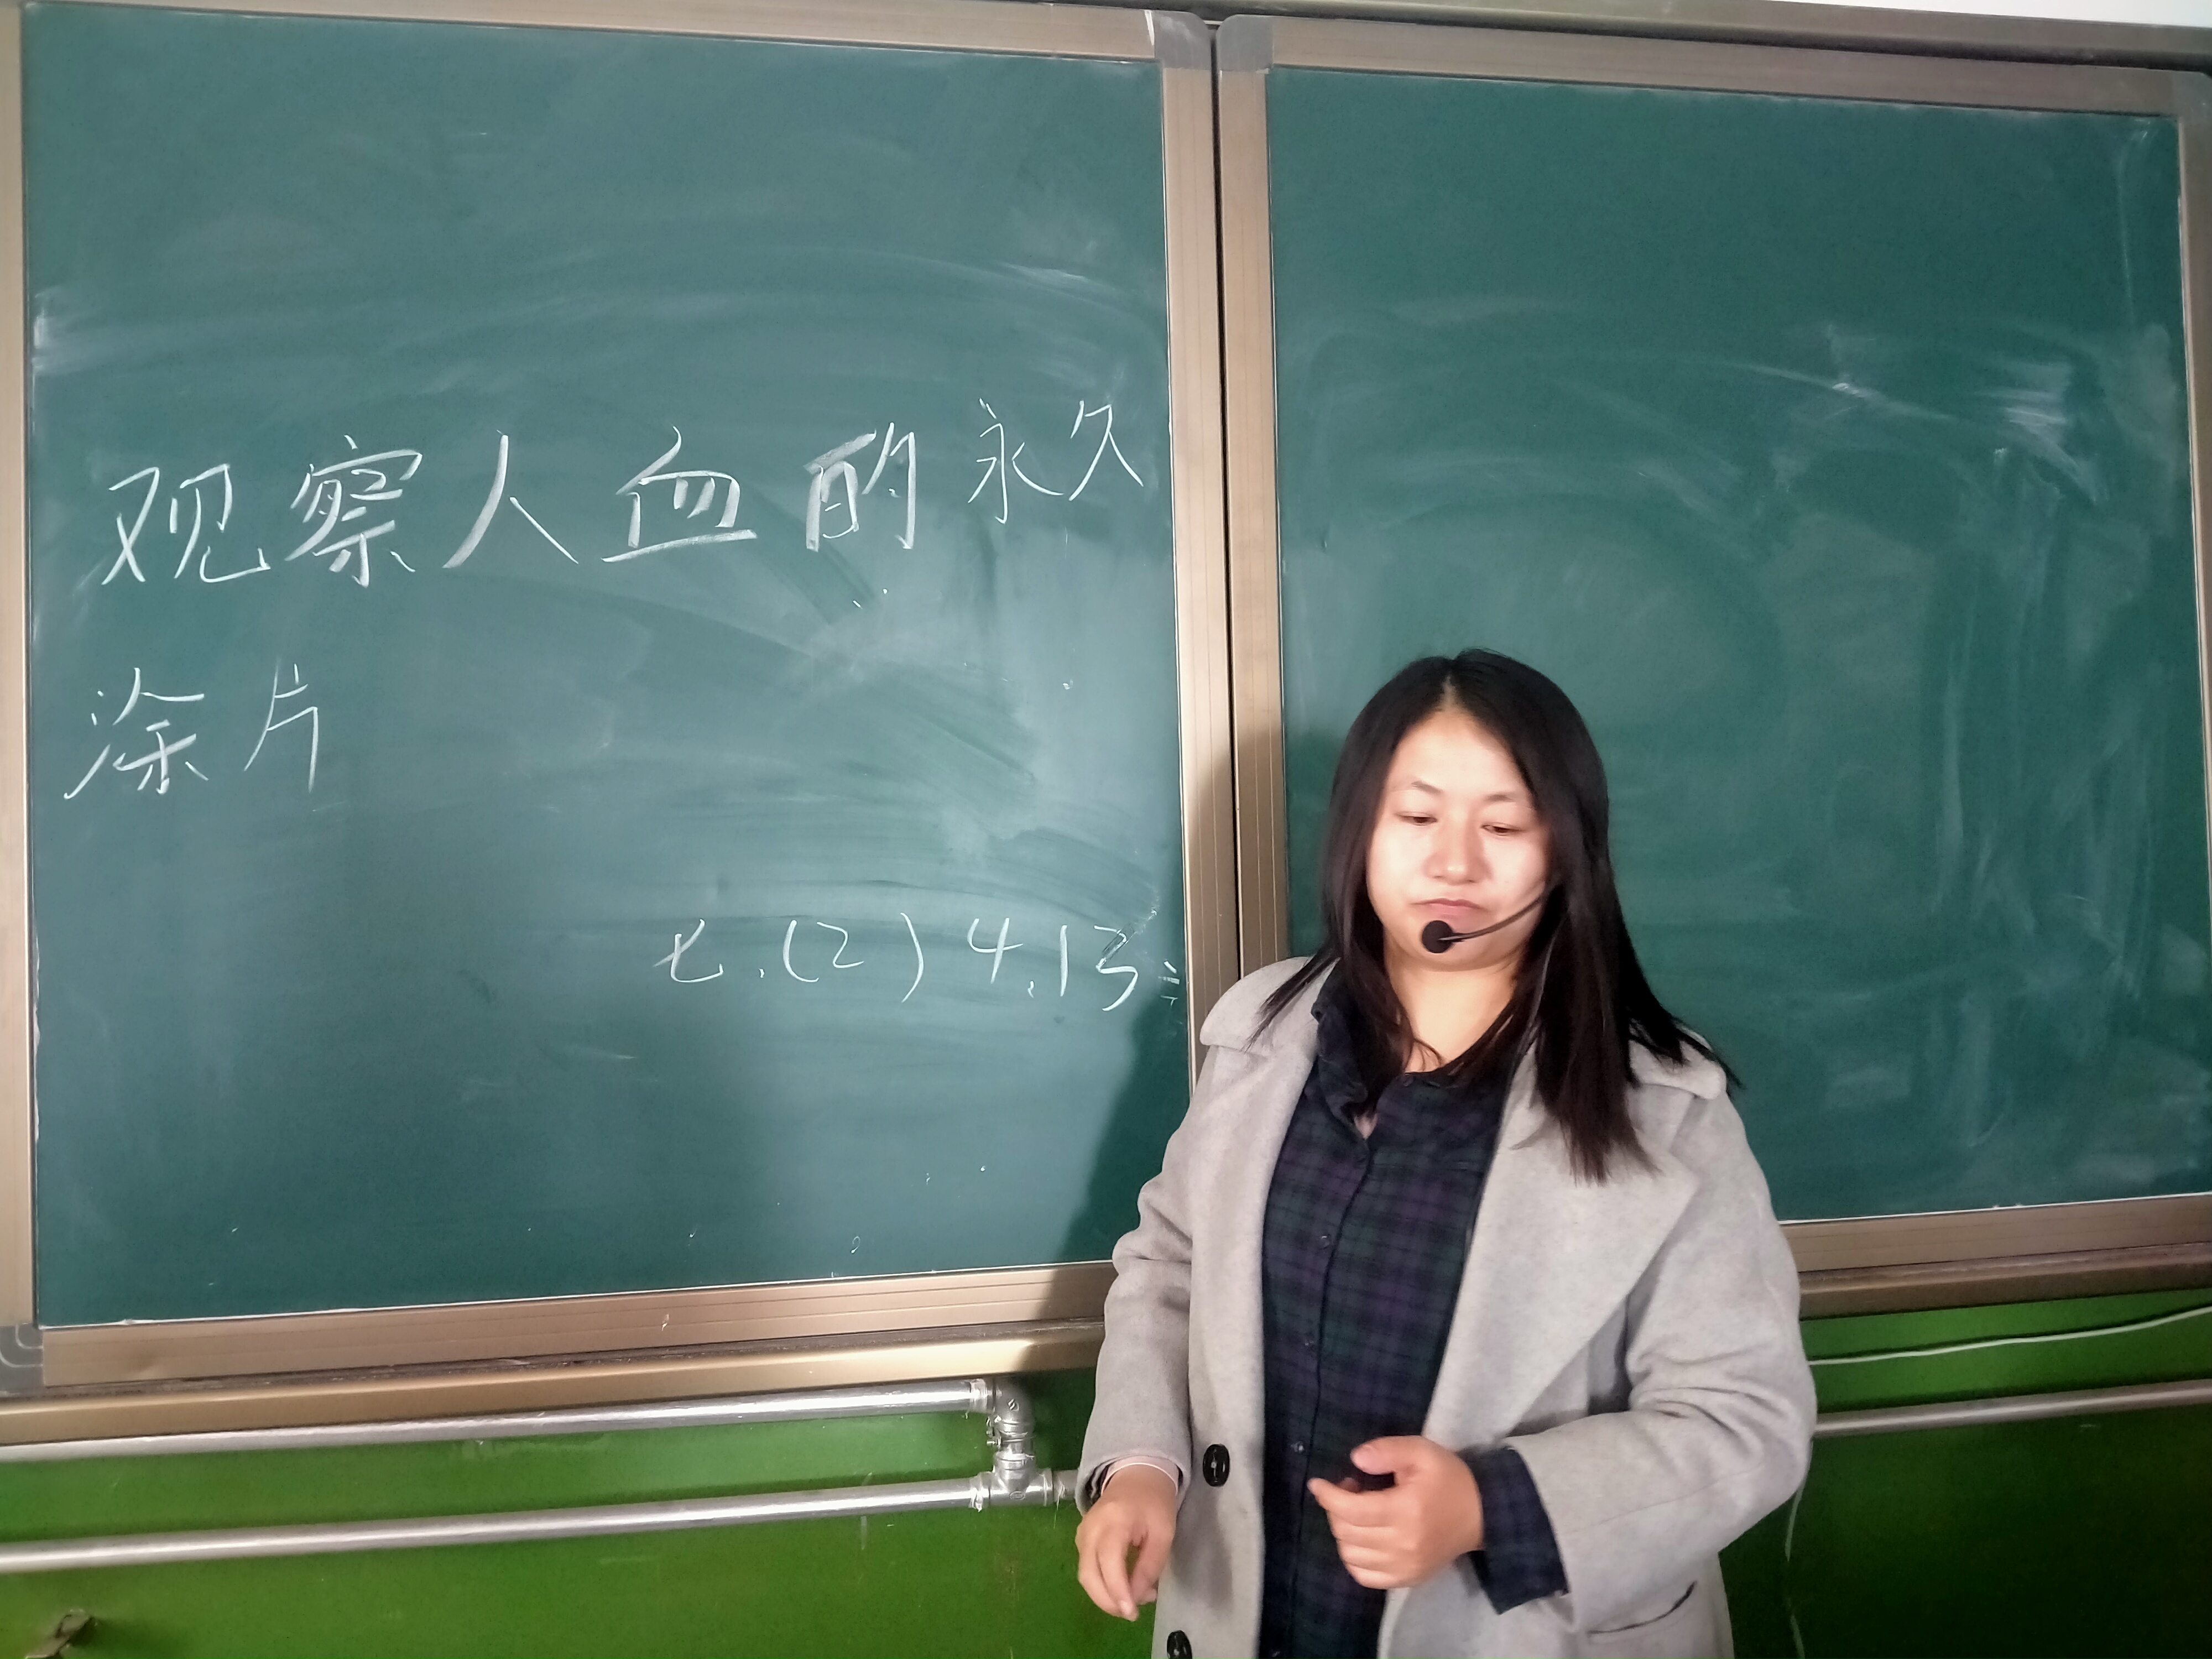 观察人血的永久
涂片
七.(2) 4.13